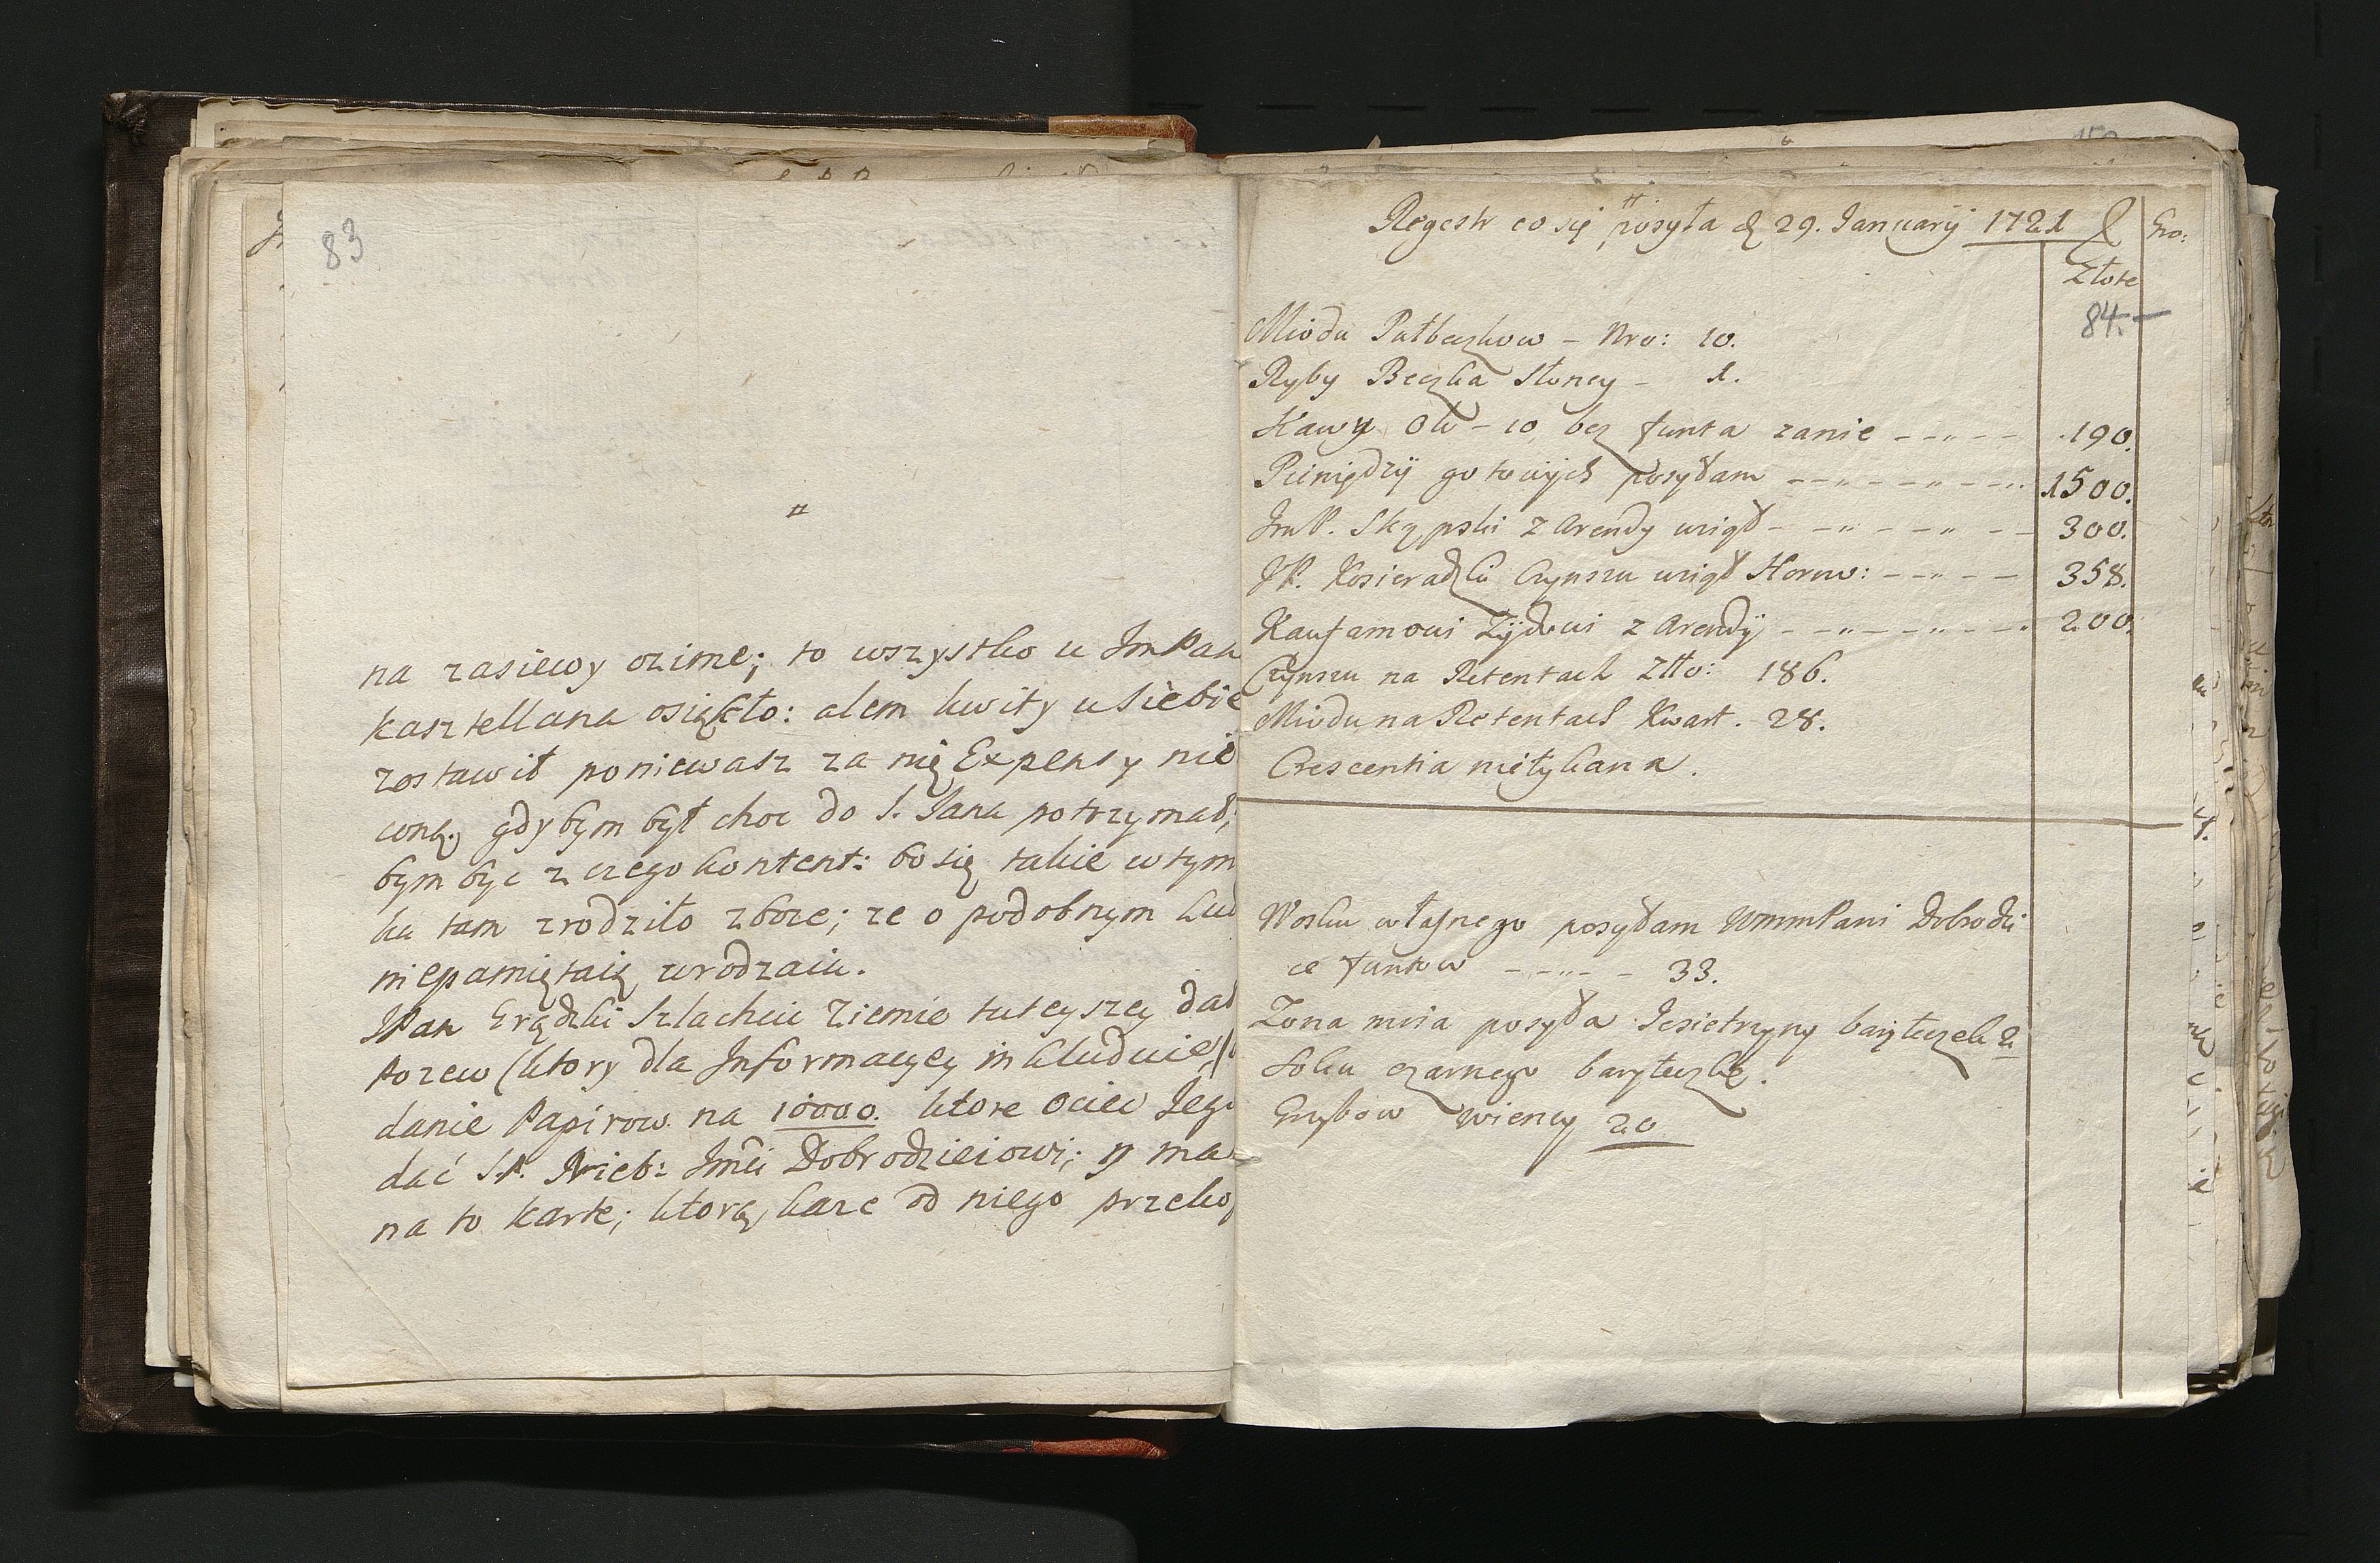 83
#
na zasiewy ozime; to wszystko u ImPan
kasztellana osiękło: alem kwity u siebie
zostawił poniewasz za nię Expensy nie
coną. gdybym był choc do S. Jana potrzymał;
bym byc z czego kontent: bo się takie w tym
ku tam zrodziło zboze; ze o podobnym lud
niepamiętaią urodzaiu.
JPan Grądzki Szlachcic Ziemie tuteyszey dał
pozew (ktory dla Informacyey inkluduie)
danie Papirow na 10000. ktore Ociec Jego
dać S.P. Nieb: Jmci Dobrodzieiowi; y ma
na to karte; ktorą kaze od niego przeko
Regestr co się posyła d 29. Januarij 1721
Gro:
Złote
84.
Miodu Pułbeczkow - Nro: 10.
Ryby Beczka Słoney - 1.
Kawy Ok - 10 bez funta zanie - - " - - 190.
Pieniędzÿ gotowÿch posyłam - - " - - " - - 1500.
ImP. Skępski z Arendy wziął - - " - - " - - 300.
JP. Kosieradzki Czynszu wziął Horow: - - " - - 358.
Kaufamowi Zÿdowi z Arendÿ - - " - - " - - 200.
Czynszu na Retentach Złło: 186.
Miodu na Retentach Kwart. 28.
Crescentia nietykana.
Wosku własnego posyłam WmmPani Dobrodzi
ce funtow - - " - - 33.
Zona moia posyła Jesietrzyny baryłeczek 2
Soku czarnego baryłeczkę.
Grzybow wiency 20